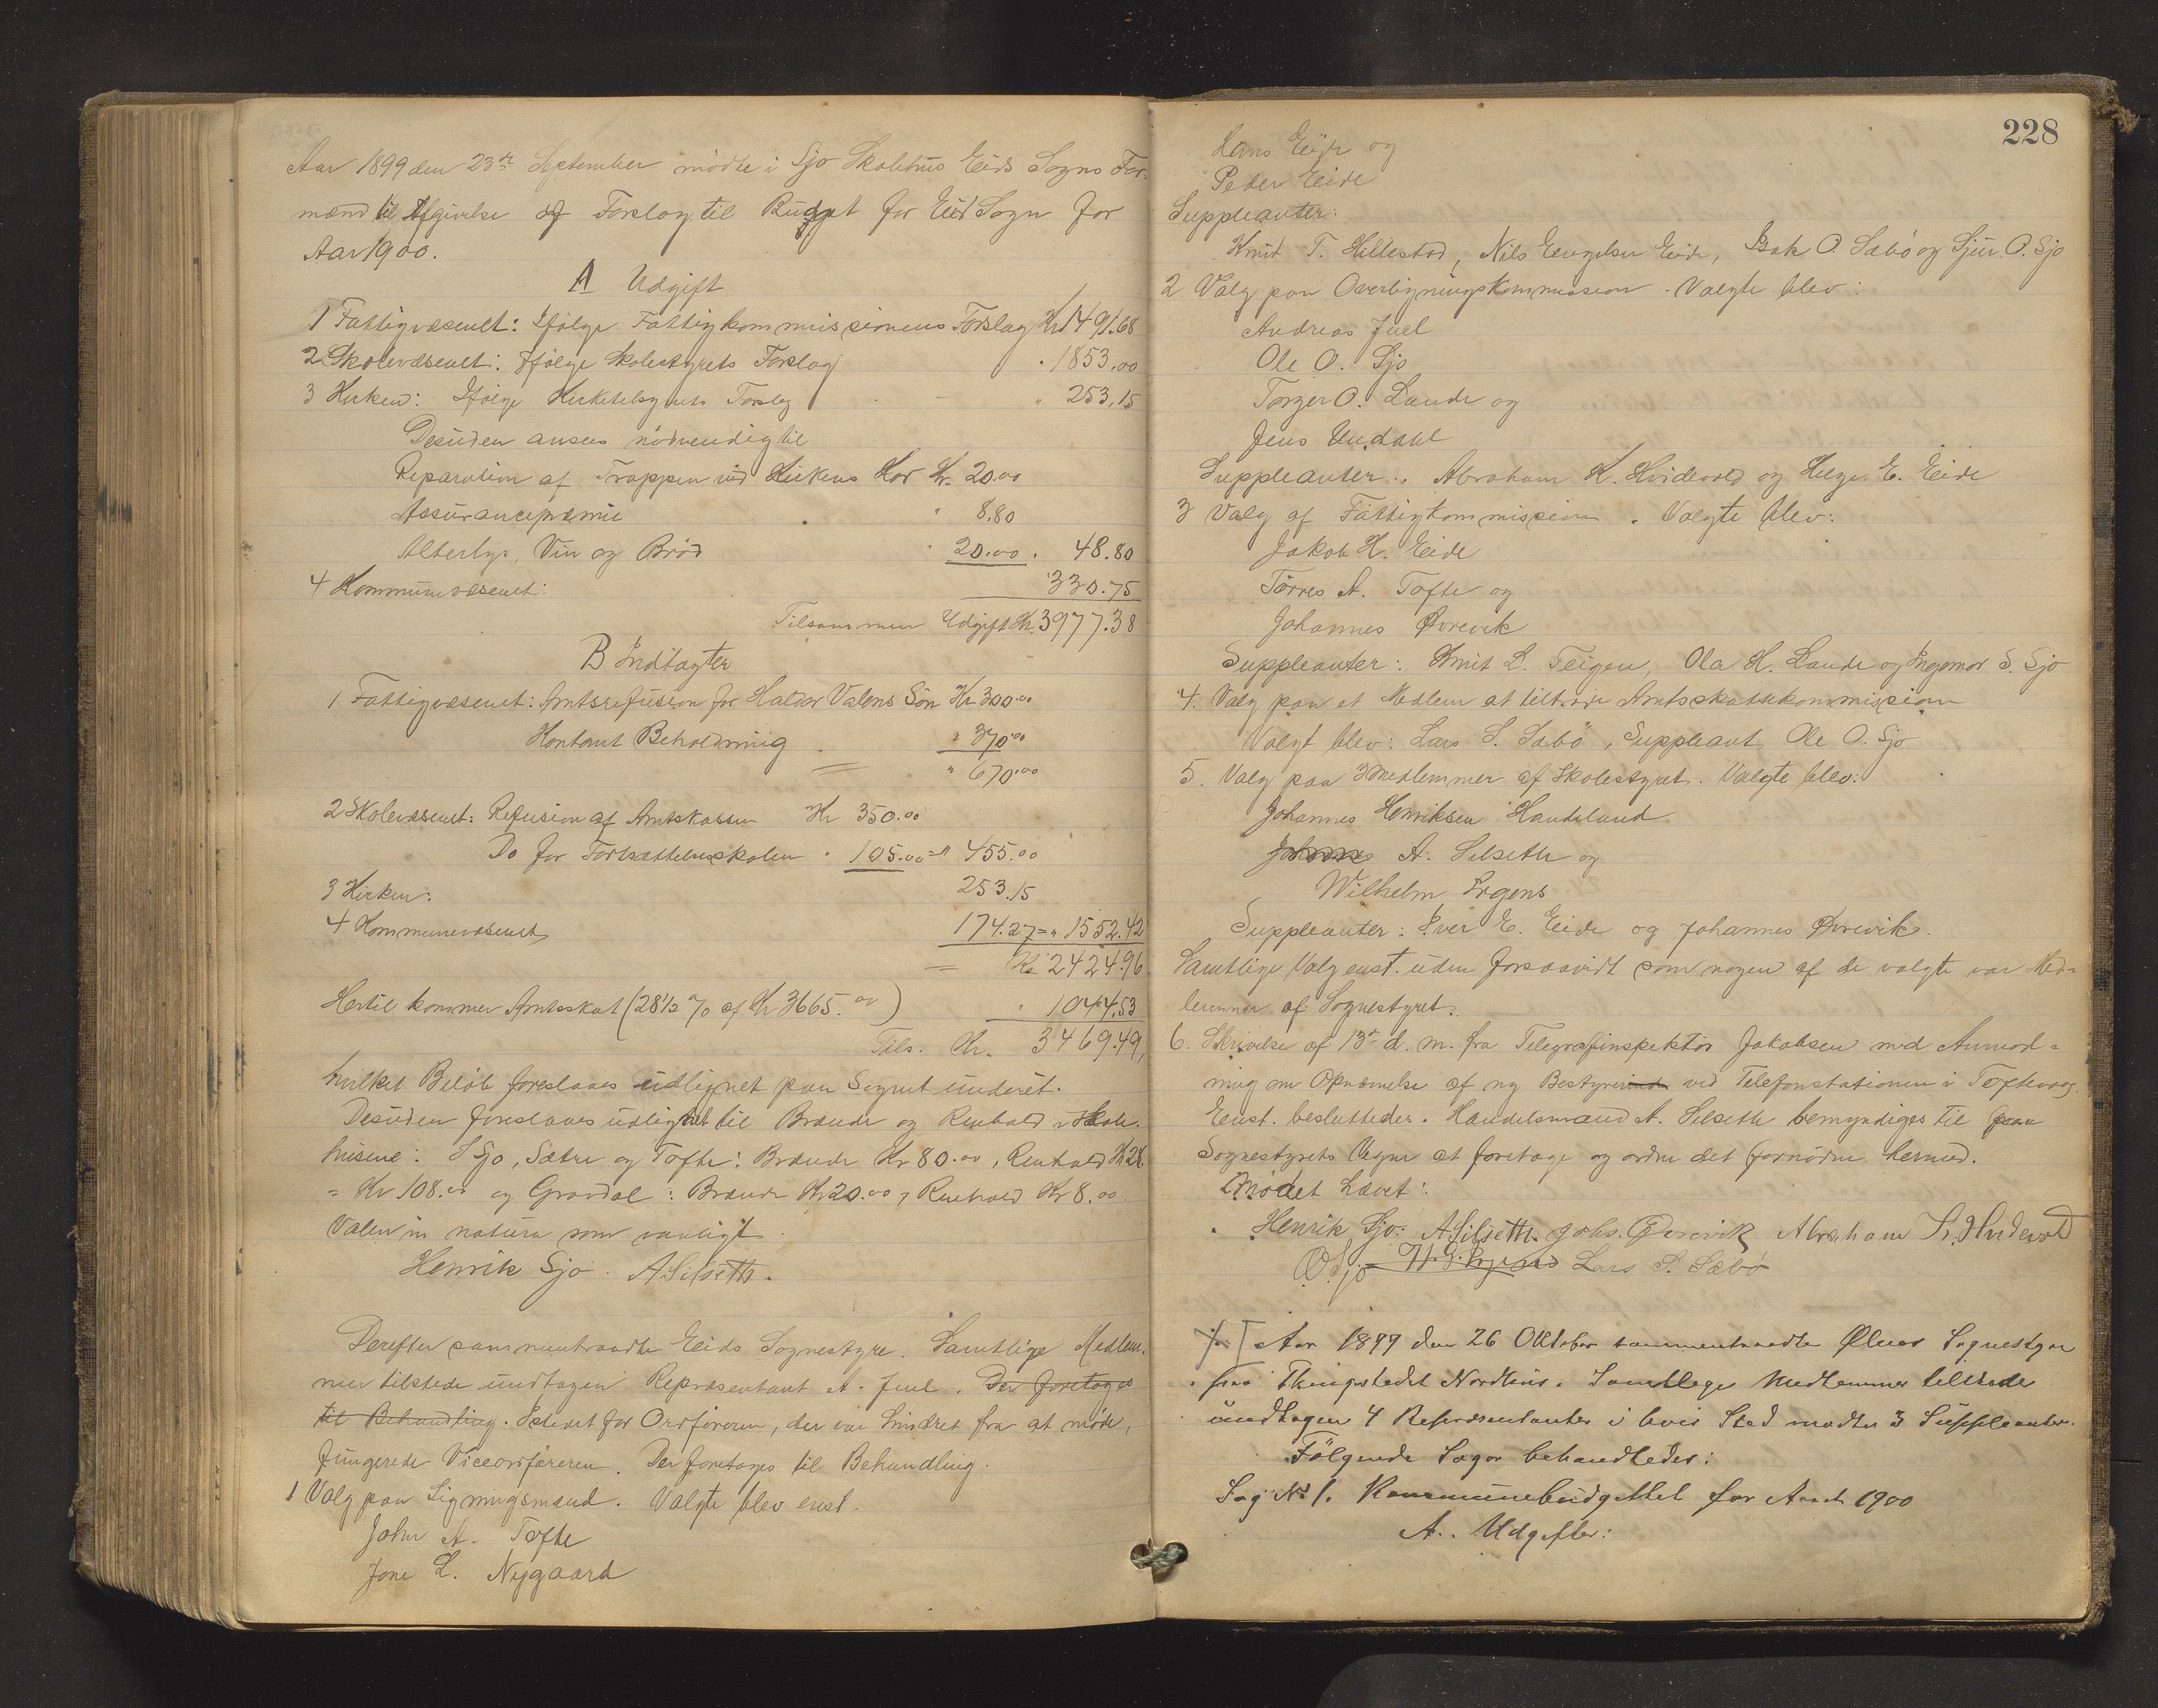 Aar 1899 den 23de September mödte i Sjo Skolehus Eids Sogns For-
mænd til Afgivelse af Forslag til Budget for Eid Sogn for
Aar 1900.
A Udgift
1 Fattigvæsenet: Ifölge Fattigkommissionens Forslag Kr 1491.68
2 Skolevæsenet: Ifölge Skolestyrets Forslag " 1853.00
3 Kirken: Ifölge Kirketilsynets Forslag " 253,15
Desuden ansees nödvendig til
Reparation af Trappen ved Kirkens Kor Kr. 20.00
Assurancepræmie " 8.80
Alterlys, Vin og Bröd " 20.00 " 48.80
4 Kommunevæsenet: 330.75
Tilsammen Udgift Kr. 3977.38
B Indtægter
1 Fattigvæsenet: Amtsrefusion for Haldor Valens Sön Kr 300.00
Kontant Beholdning " 370.00
= " 670.00
2 Skolevæsenet: Refusion af Amtskassen Kr 350.00
Do for Fortsættelsesskolen " 105.00 = " 455.00
3 Kirken: 253.15
4 Kommunevæsenet 174.27 = " 1552.42
= Kr 2424.96
Hertil kommer Amtsskat (28½ % af Kr 3665.00) " 1044.53
Tils. Kr. 3469.49,
hvilket Belöb foreslaaes udlignet paa Sognet underét.
Desuden foreslaaes udlignet til Brænde og Renhold i Skole-
husene: I Sjo, Sætre og Tofte: Brænde Kr 80.00, Renhold Kr 28.
= Kr 108.00 og Gravdal: Brænde Kr 20.00, Renhold Kr 8.00.
Valen in natura som vanligt.
Henrik Sjo. A Silseth.
Derefter sammentraadte Eids Sognestyre. Samtlige Medlem-
mer tilstede undtagen Repræsentant A. Juel. Der foretoges
til Behandling. Istedet for Ordföreren, der var hindret fra at möde,
fungerede Viceordföreren. Der foretoges til Behandling.
1 Valg paa Ligningsmænd. Valgte blev enst.
John A. Tofte
Jone L. Nygaard
228
Lars Eide og
Peder Eide
Suppleanter:
Knut T. Hillestad, Nils Engelsen Eide, Isak O. Sæbö og Sjur O. Sjo
2 Valg paa Overligningskommission. Valgte blev:
Andreas Juel
Ole O. Sjo
Torger O. Lande og
Jens Undahl
Suppleanter: Abraham K. Hvidevold og Helge E. Eide
3 Valg af Fattigkommission. Valgte blev:
Jakob H. Eide
Törres A. Tofte og
Johannes Övrevik
Suppleanter: Knut L. Teigen, Ola H. Lande og Ingemar S. Sjo
4. Valg paa et Medlem at tiltræde Amtsskattekommission
Valgt blev: Lars S. Sæbö, Suppleant Ole O. Sjo
5. Valg paa 3 Medlemmer af Skolestyret. Valgte blev:
Johannes Henriksen Handeland
Johannes A. Silseth og
Wilhelm Irgens
Suppleanter: Iver E. Eide og Johannes Övrevik.
Samtlige Valg enst. uden forsaavidt som nogen af de valgte var Med-
lemmer af Sognestyret.
6. Skrivelse af 13de d. m. fra Telegrafinspektör Jakobsen med Anmod-
ning om Opnævnelse af ny Bestyrerinde ved Telefonstationen i Toftevaag.
Enst. besluttedes. Handelsmand A. Silseth bemyndiges til paa
Sognestyrets Vegne at foretage og ordne det fornödne hermed.
Mödet hævet.
Henrik Sjo. A Silseth. Johs. Övrevik Abraham K. Hvidevold
O Sjo W. S. Irgens Lars S. Sæbö
Aar 1899 den 26 Oktober sammentraadte Ölves Sognestyre
paa Thingstedet Nordhus. Samtlege Medlemmer tilstede
undtagen 4 Repræsentanter i hvis Sted mødte 3 Suppleanter.
Fölgende Sager behandledes:
Sag No 1. Kommunebudgettet for Aaret 1900
A. Udgifter: